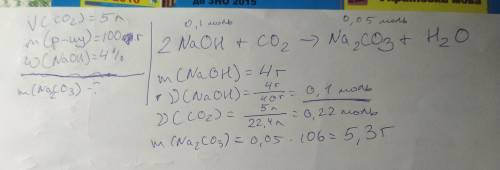 До ЗНО 2015
V(CO₂)=5л
m(р-ну)=100г
ω(NaOH)=4%
m(Na₂CO₃)-?
0,1 моль 0,05 моль
2NaOH + CO₂ → Na₂CO₃ + H₂O
m(NaOH)=4г
ν(NaOH)=4г/40г=0,1 моль
ν(CO₂)=5л/22,4л=0,22 моль
m(Na₂CO₃)=0,05·106=5,3г